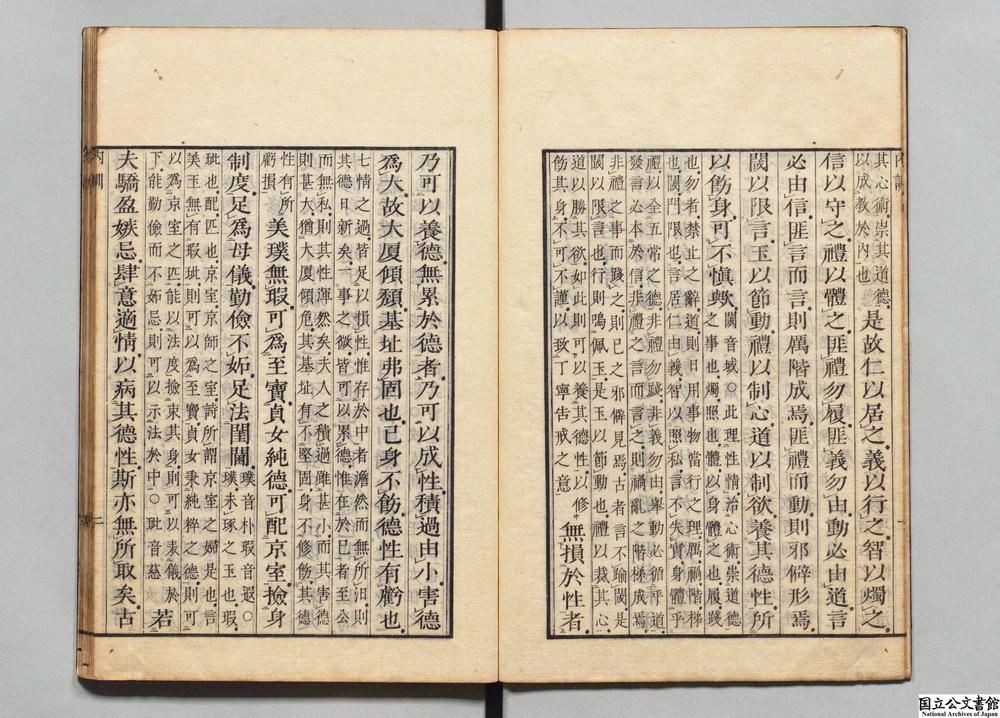 其心術崇其道德
以成教於內也
是故仁以居之義以行之智以燭之
信以守之禮以體之匪禮勿履匪義勿由動必由道言
必由信匪言而言則厲階成焉匪禮而動則邪僻形焉
閾以限言玉以節動禮以制心道以制欲養其德性所
以飭身可不慎歟
閾音域○此理性情治心術崇道德
之事也燭照也體以身體之也履踐
也勿者禁止之辭道則日用事物當行之理厲禍階梯
也閾門限也言居仁由義智以照私言不失實身體乎
禮以全五常之德非禮勿踐非義勿由舉動必循乎道
發言必本於信非禮之言而言之則禍亂之階梯成焉
非禮之事而踐之則已之邪僻見焉古者言不踰閾是
閾以限言也行則鳴佩玉是玉以節動也禮以裁其心
道以勝其欲如此則可以養其德性以修
飭其身不可不謹以致丁寧告戒之意
無損於性者
乃可以養德無累於德者乃可以成性積過由小害德
爲大故大厦傾頹基址弗固也己身不飭德性有虧也
七情之過皆足以損性惟存於中者澹然而無所汩則
其德日新矣一事之微皆可以累德惟在於已者至公
而無私則其性渾然矣夫人之積過雖甚小而其害德
則甚大猶大厦傾危其基址有不堅固身不修飭其德
性有所
虧損
美璞無瑕可爲至寶貞女純德可配京室撿身
制度足爲母儀勤儉不妬足法閨閫
璞音朴瑕音遐○
璞未琢之玉也瑕
玼也配匹也京室京師之室詩所謂京室之婦是也言
美玉無有瑕玼則可以爲至寶貞女秉純粹之德則可
以爲京室之匹能以法度撿束其身則可以表儀於
下能勤儉而不妬忌則可以示法於中○玼音慈
若
夫驕盈嫉忌肆意適情以病其德性斯亦無所取矣古
內訓
二
国立公文書館
National Archives of Japan